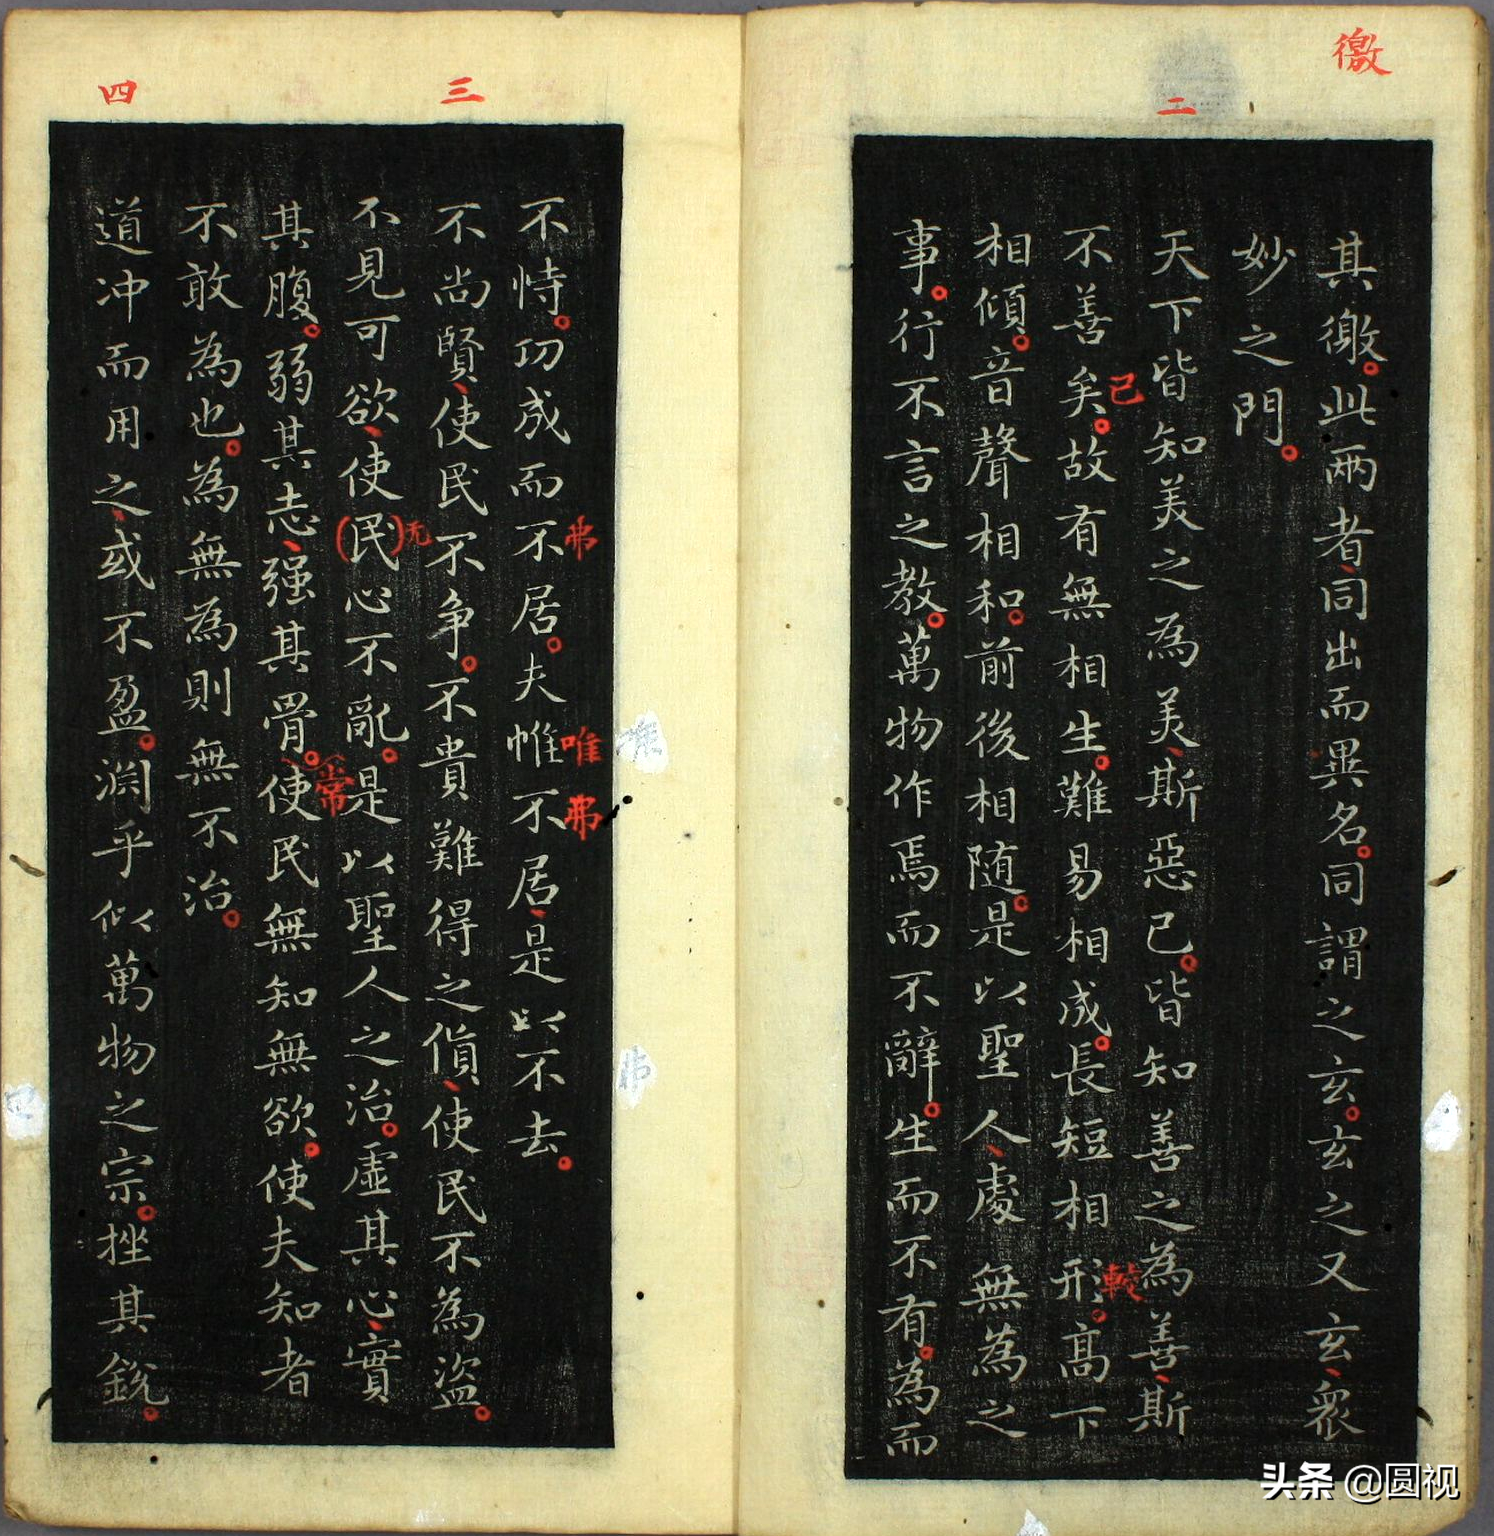 徼
其徼。此兩者、同出而異名。同謂之玄。玄之又玄、衆
妙之門。
二
天下皆知美之為美、斯惡已。皆知善之為善、斯
已
不善矣。故有無相生。難易相成。長短相形。高下
較
相傾。音聲相和。前後相随。是以聖人、處無為之
事。行不言之教。萬物作焉而不辭。生而不有。為而
不恃。功成而不居。夫惟不居、是以不去。
弗
唯
弗
三
不尚賢、使民不争。不貴難得之貨、使民不為盗。
不見可欲、使(民)心不亂。是以聖人之治。虛其心、實
无
其腹。弱其志、强其骨。使民無知無欲。使夫知者
常
不敢為也。為無為則無不治。
四
道冲而用之、或不盈。渊乎似萬物之宗。挫其銳。
头条 @圆视